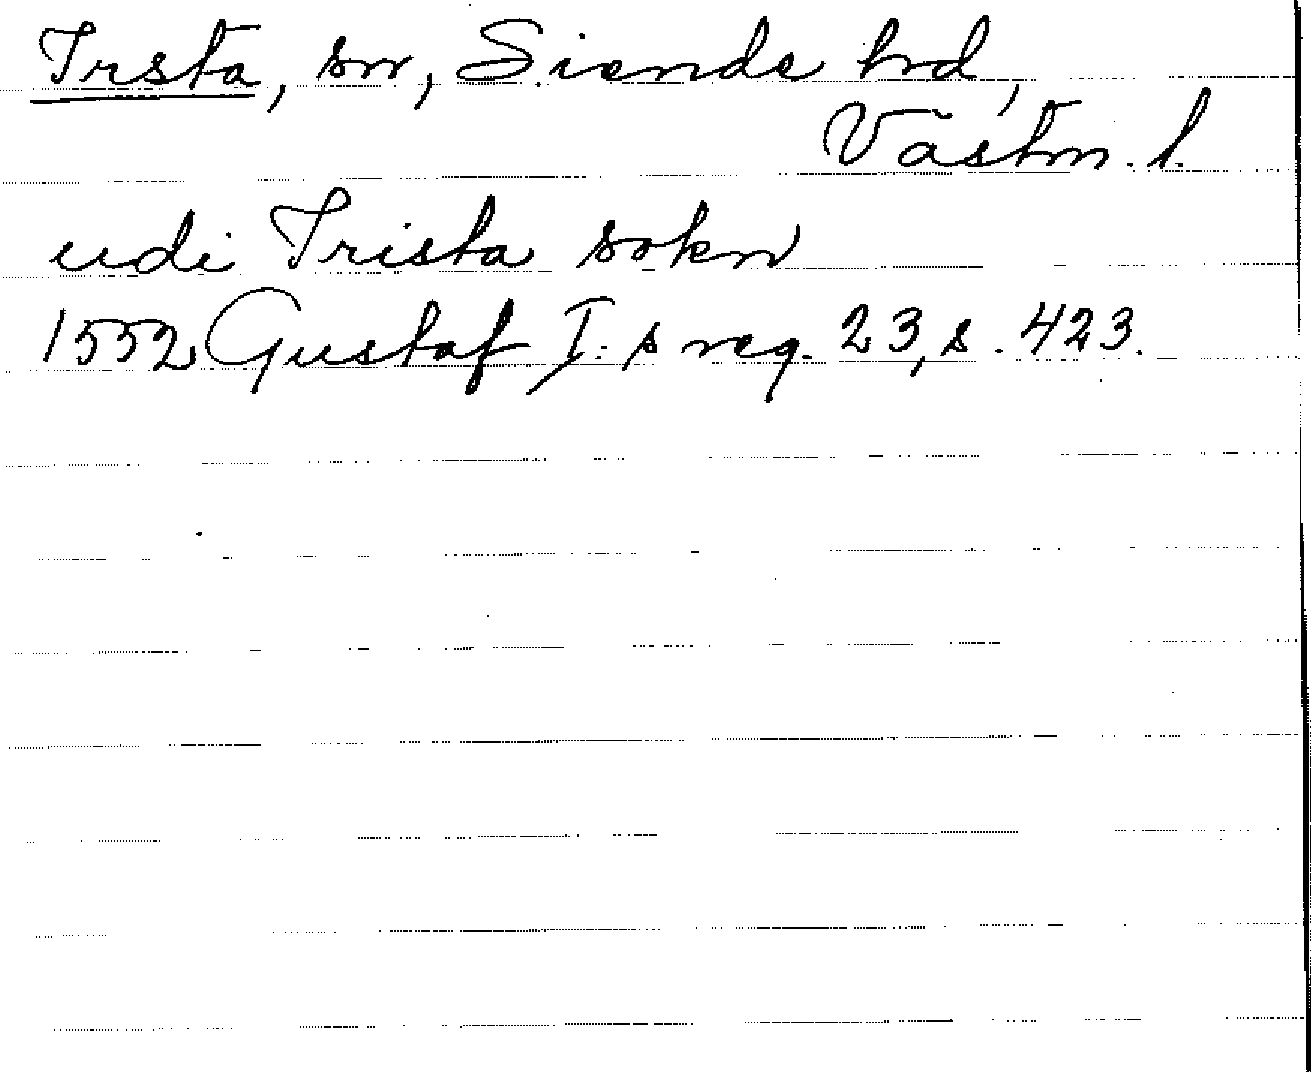 Irsta, sn, Siende hrd,
Västm. l.
udi Irista sokn
1552 Gustaf I:s reg. 23, s. 423.